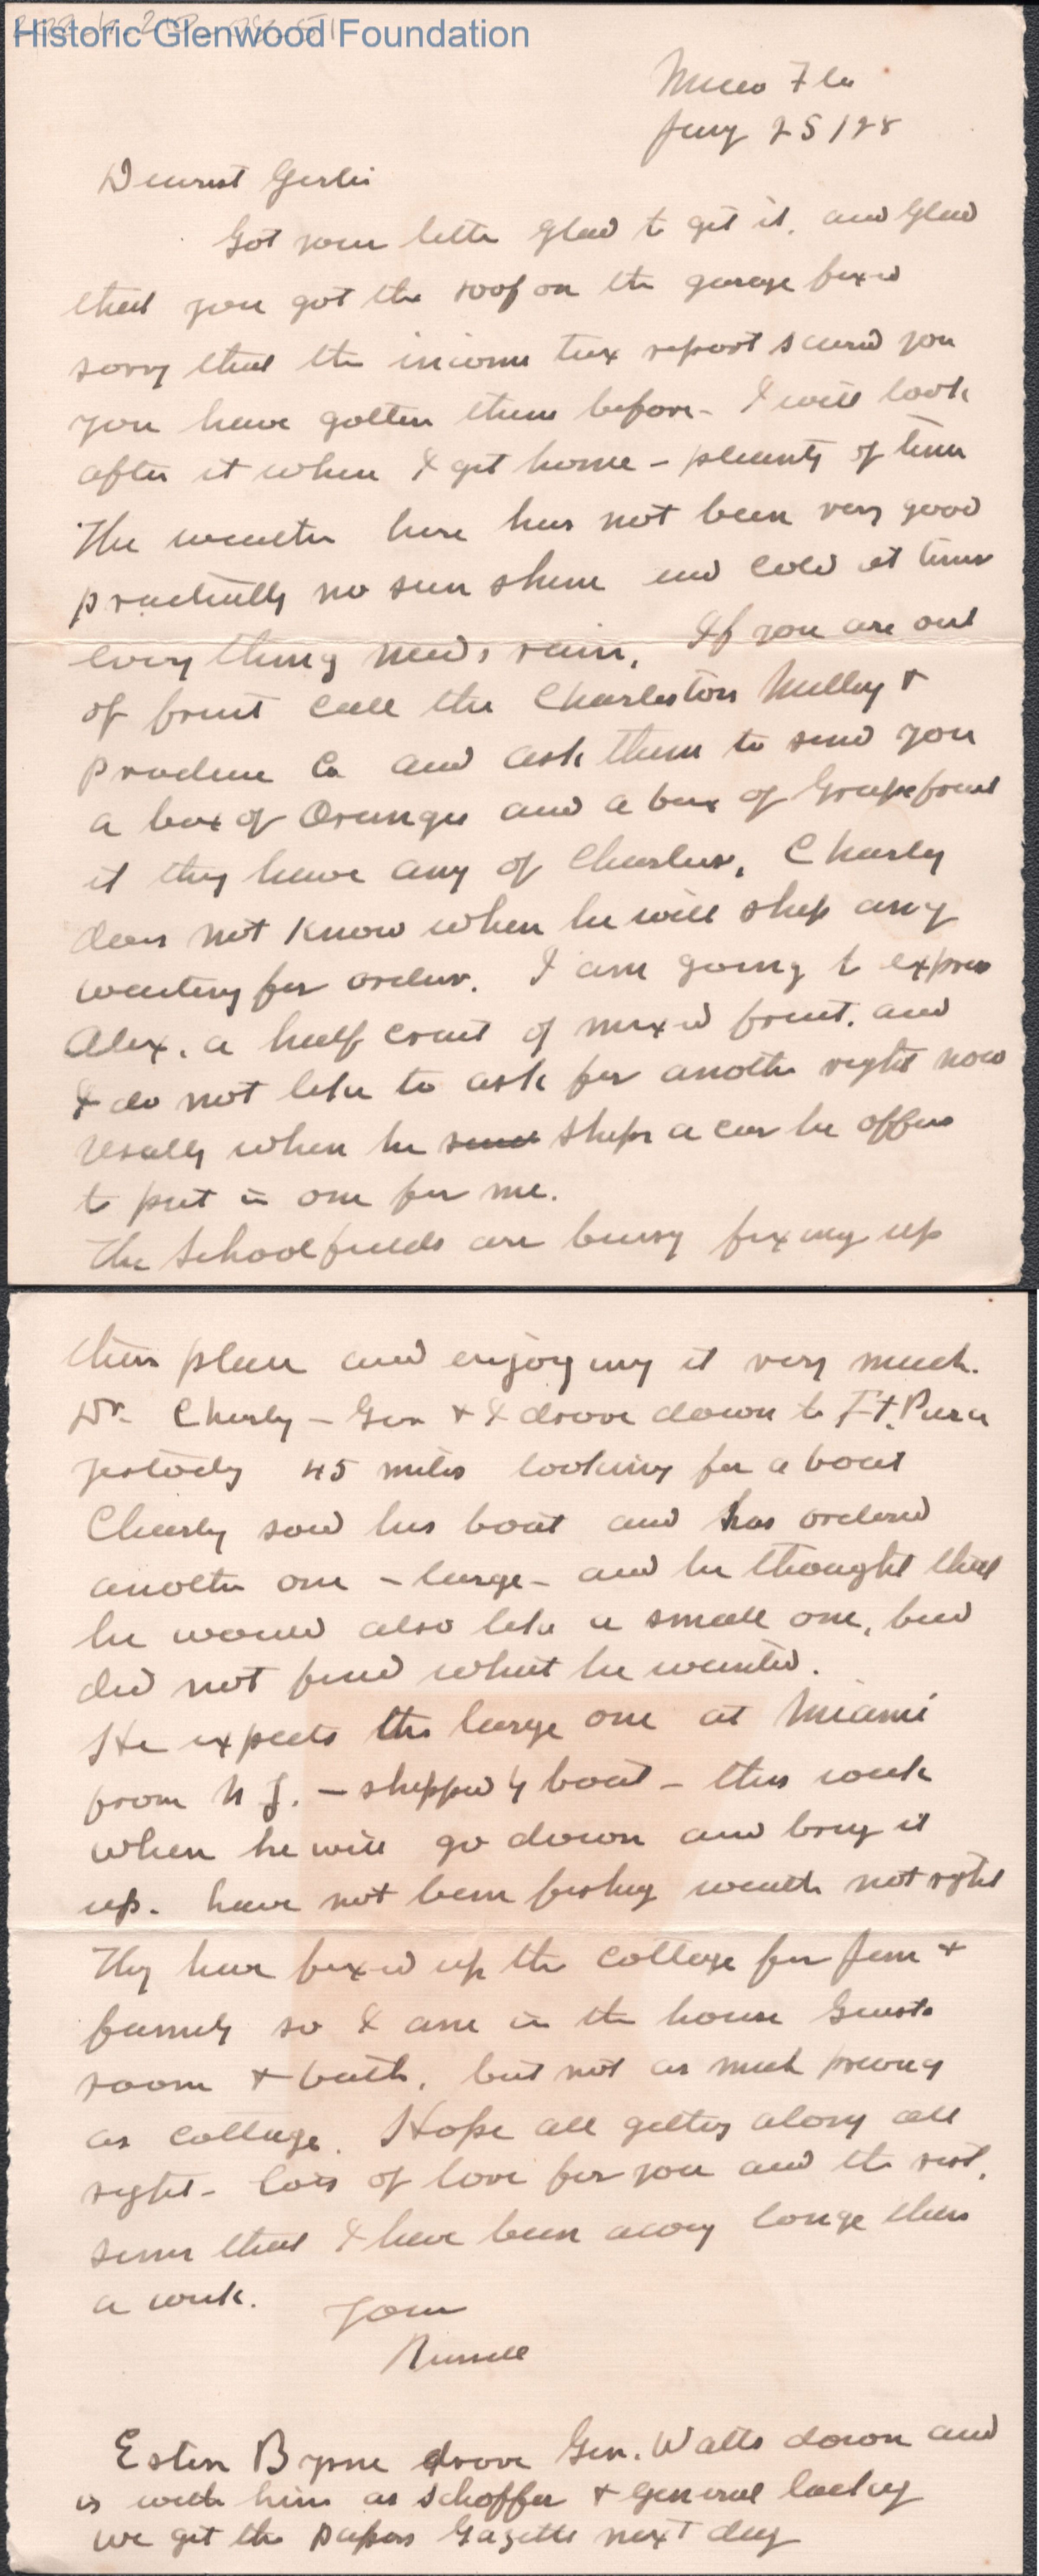 Historic Glenwood Foundation
Micco Fla
Jany 25/28
Dearest Gertie
Got your letter glad to get it. and glad
that you got the roof on the garage fixed
sorry that the income tax report scared you
you have gotten them before - I will look
after it when I get home - plenty of time
The weather here has not been very good
practically no sun shine and cold at times
every thing needs rain. If you are out
of fruit call the Charleston Milling &
Produce Co and ask them to send you
a box of Oranges and a box of Grapefruit
if they have any of Charleys. Charley
does not know when he will ship any
waiting for orders. I am going to express
Alex. a half crate of mixed fruit. and
I do not like to ask for another right now
Usally when he ships a car he offers
to put in one for me.
The Schoolfields are busy fixing up
their place and enjoying it very much.
Dr - Charly - Gen & I drove down to Ft. Pierce
yestody 45 miles looking for a boat
Charly sold his boat and has ordered
another one - large - and he thought that
he would also like a small one, but
did not find what he wanted.
He expects the large one at Miami
from N J. - shipped by boat - this week
when he will go down and bring it
up. have not been fishing weather not right
They have fixed up the cottage for Jim &
family so I am in the house Guests
room & bath. but not as much privacy
as cottage. Hope all getting along all
right - lots of love for you and the rest.
seems that I have been away longer than
a week.
Your
Russell
Esten Byrne drove Gen. Watts down and
is with him as schoffer & general lackey
we get the papers Gazette next day